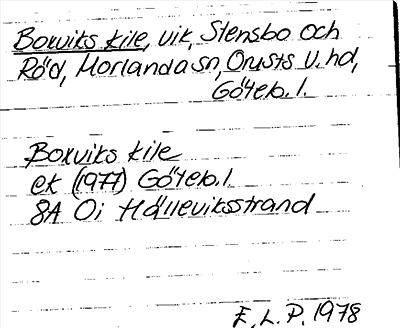 Boxviks kile, vik, Stensbo och
Röd, Morlanda sn, Orusts V. hd,
Göteb. l.
Boxviks kile
ek (1977) Göteb. l.
8A Oi Hälleviksstrand
E. L. P. 1978